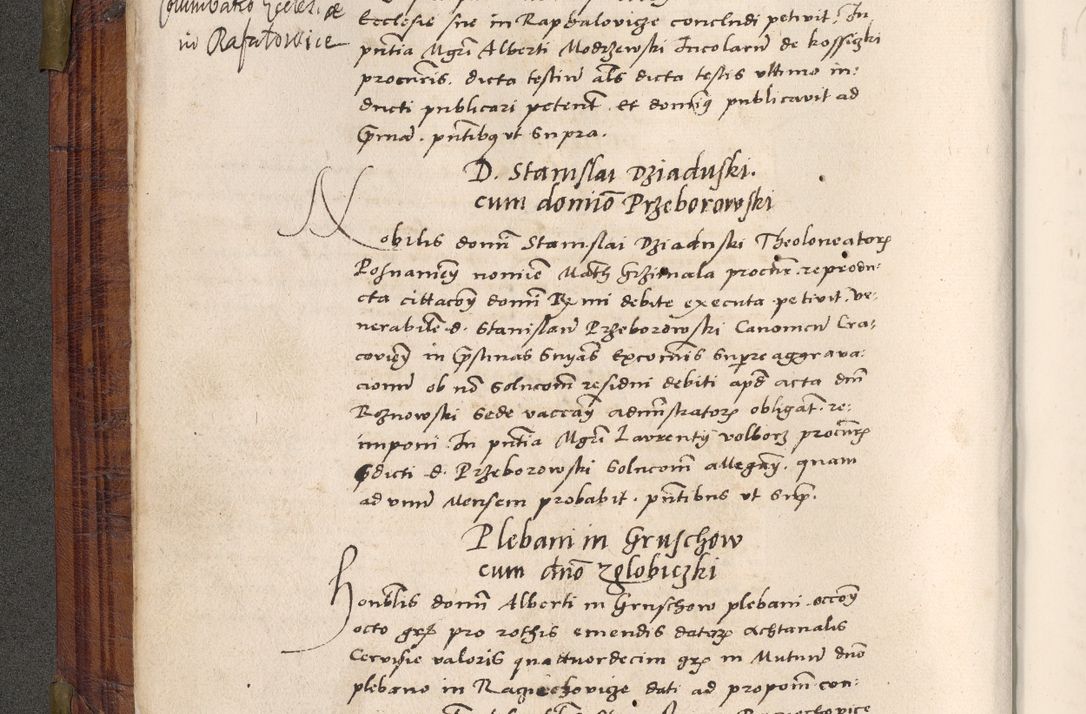 in Rafalowice
Ecclesie sue in Raphalovicze concludi petivit. In
pntia Mgri Alberti Modrzewski Incolarum de Kossiczki
procuris. dicta testium als dicta testis ultimo in:
ducti publicari petent. et domis publicavit ad
pmam. pntibus ut supra.
D. Stanislai Dziaduski.
cum domino Przeborowski
Nobilis domi Stanislai Dziaduski Theoloneatoris
Posnanien nomine Math Grzimala procur. reprodu:
cta cittacoem domi Re mi debite executa petivit. ve:
nerabilem d. Stanislaum Przeborowski Canonicum Cra:
covien in pstinas snias excomis supreaggrava:
cionum ob no solucom residui debiti aput acta dni
Roznowski sede vaccan adminstratoris obligat. re:
imponi. In pntia Mgri Laurentij volborz procuris
pdicti d. Przeborowski solucom allegan. quam
ad unum mensem probabit. pntibus ut sup.
Plebani in Gruschow
cum dno Zglobiczki
Honblis domi Alberti in Gruschow plebani
octo grz pro rothis emendis datarum achtanalis
Cervisie valoris quattuordecim grz in Mutuum dno
plebano in Raciechovicze dati ad proponm con: